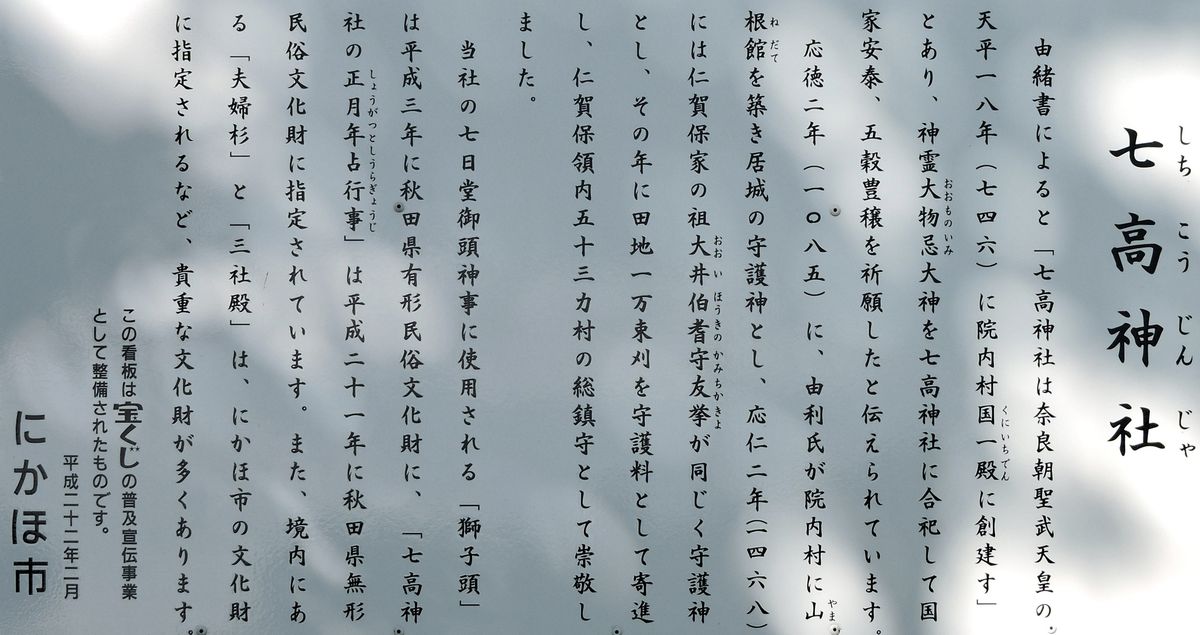 七高神社
しちこうじんじゃ
由緒書によると「七高神社は奈良朝聖武天皇の
天平一八年（七四六）に院内村国一殿に創建す」
くにいちでん
とあり、神霊大物忌大神を七高神社に合祀して国
おおものいみ
家安泰、五穀豊穣を祈願したと伝えられています。
応徳二年（一〇八五）に、由利氏が院内村に山
やま
根館を築き居城の守護神とし、応仁二年（一四六八）
ねだて
には仁賀保家の祖大井伯耆守友挙が同じく守護神
おおいほうきのかみちかきよ
とし、その年に田地一万束刈を守護料として寄進
し、仁賀保領内五十三カ村の総鎮守として崇敬し
ました。
当社の七日堂御頭神事に使用される「獅子頭」
は平成三年に秋田県有形民俗文化財に、「七高神
社の正月年占行事」は平成二十一年に秋田県無形
しょうがつとしうらぎょうじ
民俗文化財に指定されています。また、境内にあ
る「夫婦杉」と「三社殿」は、にかほ市の文化財
に指定されるなど、貴重な文化財が多くあります。
この看板は宝くじの普及宣伝事業
として整備されたものです。
平成二十二年二月
にかほ市